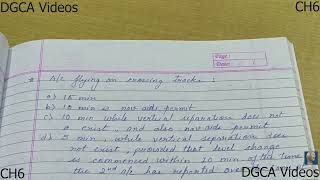 DGCA Videos
CH6
Page:
Date:
* A/c flying on crossing tracks :
a) 15 min
b) 10 min if nav aids permit
c) 10 min while vertical separation does not
exist, and also nav aids permit
d) 5 min, while vertical separation does
not exist, provided that level change
is commenced within 10 min of the time
the 2nd a/c has reported over
CH6
DGCA Videos